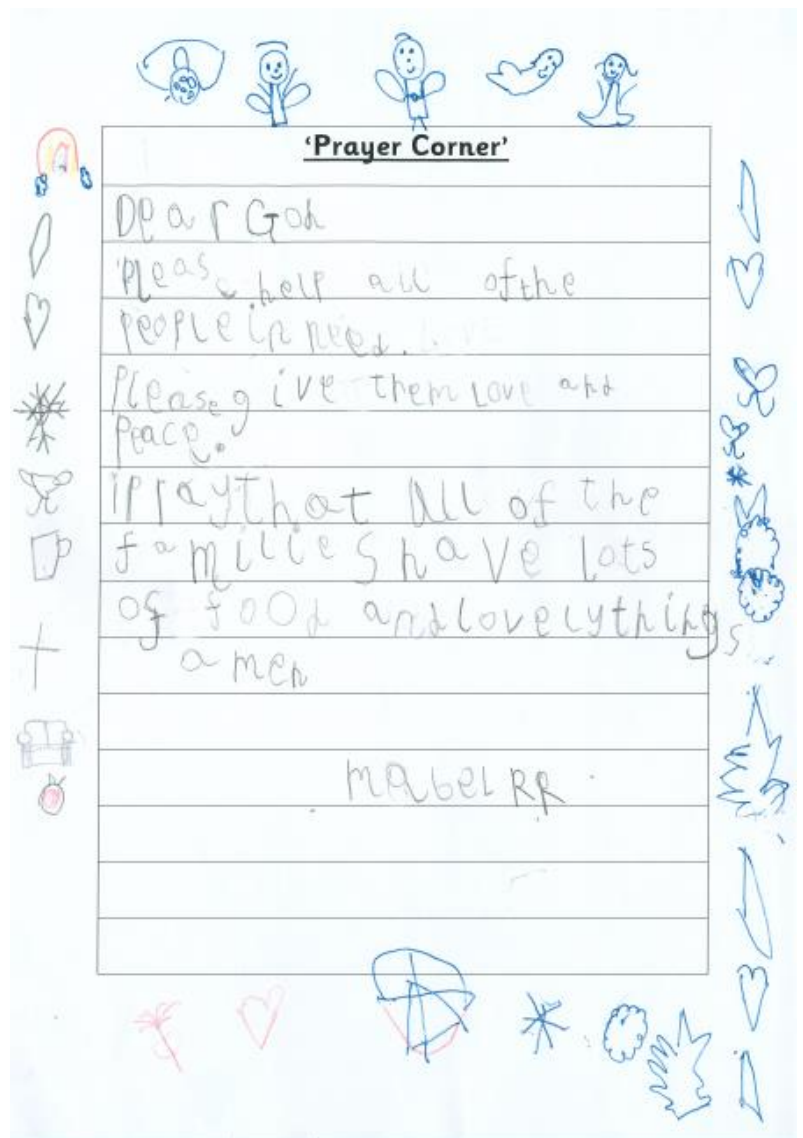 'Prayer Corner'
Dear God
Please help all of the
people in need.
Please give them love and
peace.
i pray that all of the
families have lots
of food and lovely things
amen
Mabel RR